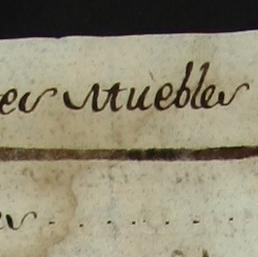 es Muebles
es . . . . . . .